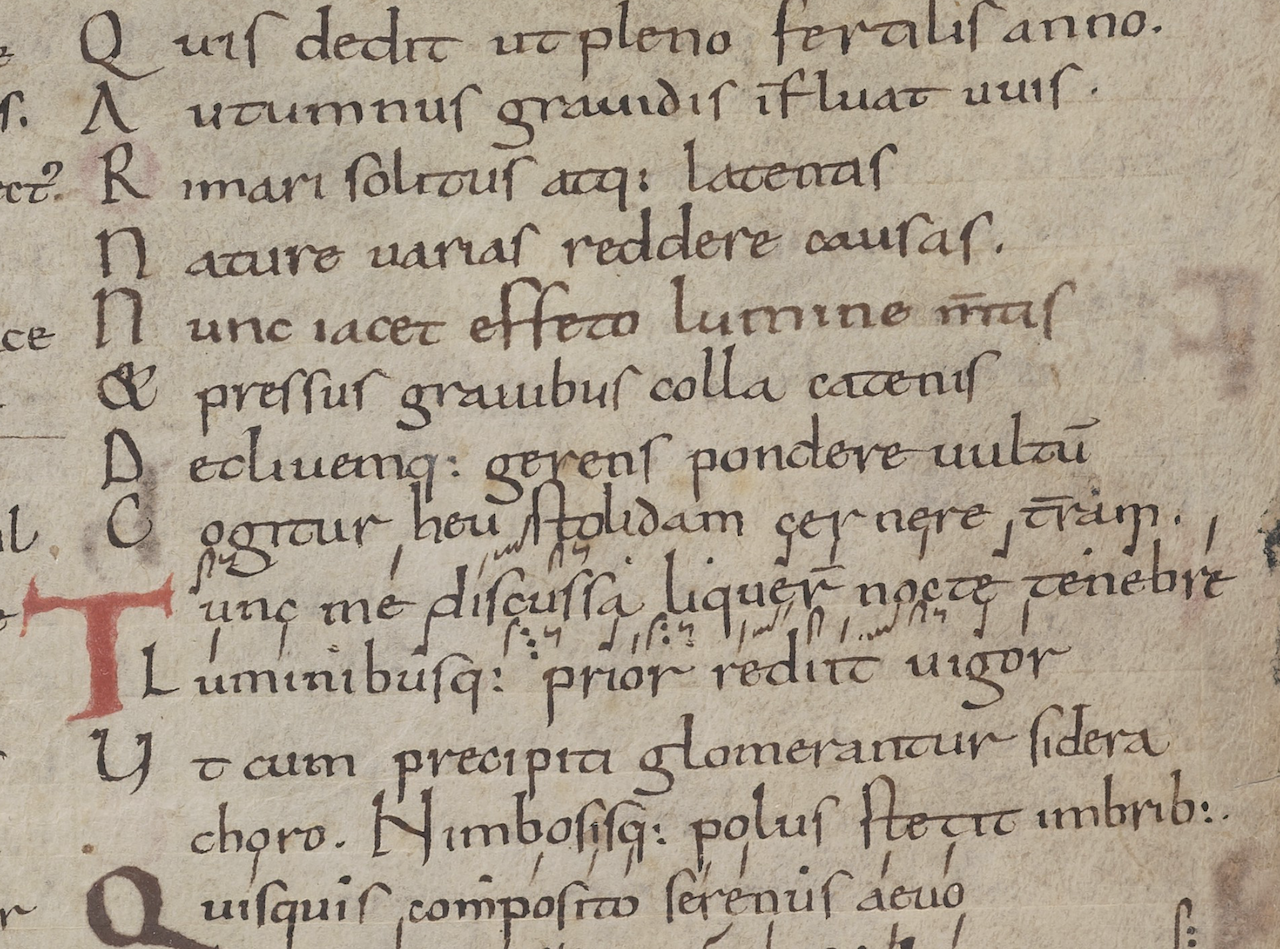 Quis dedit ut pleno fertilis anno.
Autumnus grauidis īfluat uuis.
Rimari solitus atq: latentas
Nature uarias reddere causas.
Nunc iacet effeto lumine m̄tis
& pressus grauibus colla catenis
Decliuemq: gerens pondere uultū
Cogitur heu stolidam cernere t̄ram.
Tunc me discussa liquer̄ nocte tenebre
Luminibusq: prior rediit uigor
Ut cum precipiti glomerantur sidera
choro. Nimbosisq: polus stetit imbrib:.
Quisquis composito serenus aeuo